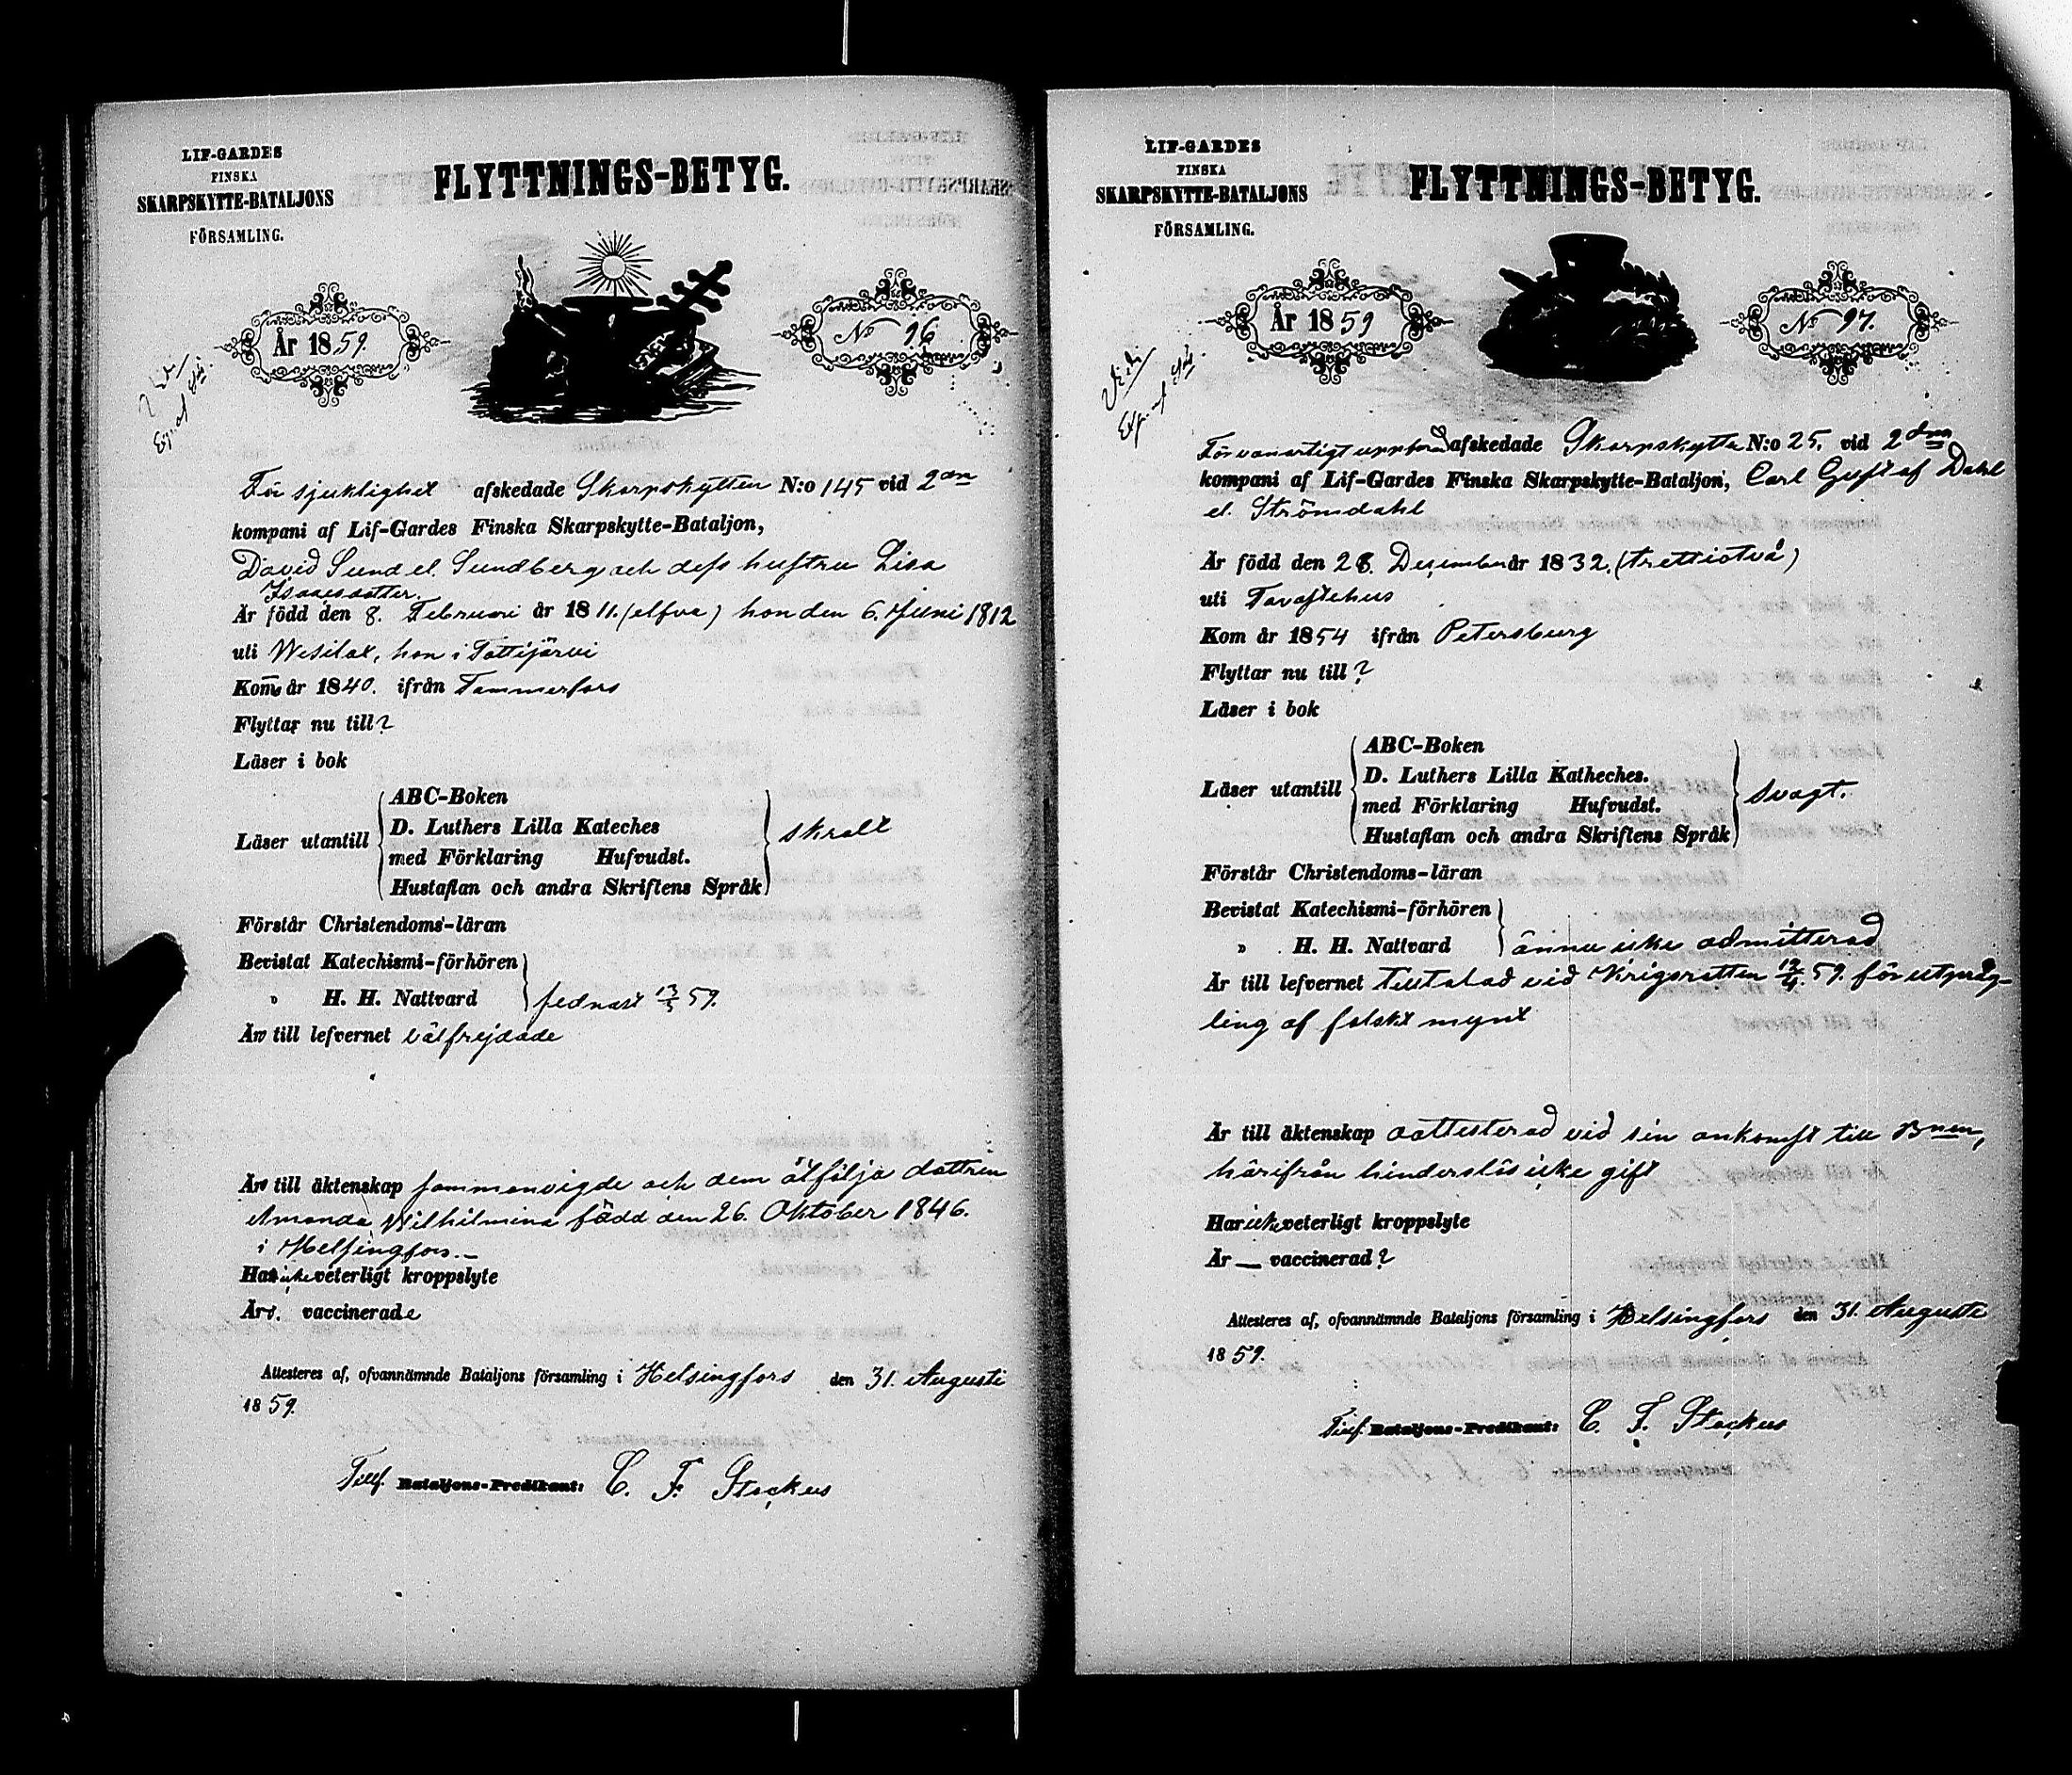 LIF-GARDES
FINSKA
SKARPSKYTTE-BATALJONS
FÖRSAMLING.
FLYTTNINGS-BETYG.
År 1859.
No 96
Exp. af Skb.
För sjuklighet afskedade Skarpskytten N:o 145 vid 2an
kompani af Lif-Gardes Finska Skarpskytte-Bataljon,
David Sund el. Sundberg och dess hustru Lisa
Isaacsdotter.
Är född den 8. Februari år 1811. (elfva) hon den 6. Juni 1812
uti Wesilax, hon i Tottijärvi
Kom år 1840. ifrån Tammerfors
Flyttar nu till?
Läser i bok
Läser utantill
ABC-Boken
D. Luthers Lilla Kateches
med Förklaring Hufvudst.
Hustaflan och andra Skriftens Språk
skralt
Förstår Christendoms-läran
Bevistat Katechismi-förhören
" H. H. Nattvard
sednast 13/3 59.
Är till lefvernet välfrejdade
Är till äktenskap sammanvigde och dem åtfölja dottren
Amanda Wilhelmina född den 26. Oktober 1846.
i Helsingfors.-
Ha icke veterligt kroppslyte
Är vaccinerade
Attesteres af, ofvannämnde Bataljons församling i Helsingfors den 31. Augusti
1859.
Tillf. Bataljons-Predikant: C. F. Stackus
LIF-GARDES
FINSKA
SKARPSKYTTE-BATALJONS
FÖRSAMLING.
FLYTTNINGS-BETYG.
År 1859
No 97.
Vidi
Exp. af Skb.
För vanartigt uppförand afskedade Skarpskytten N:o 25. vid 2dra
kompani af Lif-Gardes Finska Skarpskytte-Bataljon, Carl Gustaf Dahl
el. Strömdahl
Är född den 28. December år 1832. (trettiotvå)
uti Tavastehus
Kom år 1854 ifrån Petersburg
Flyttar nu till?
Läser i bok
Läser utantill
ABC-Boken
D. Luthers Lilla Katheches.
med Förklaring Hufvudst.
Hustaflan och andra Skriftens Språk
svagt.
Förstår Christendoms-läran
Bevistat Katechismi-förhören
" H. H. Nattvard
ännu icke admitterad
Är till lefvernet tilltalad vid Krigsrätten 12/4. 59. för utpräg-
ling af falskt mynt
Är till äktenskap oattesterad vid sin ankomst till Bnen,
härifrån hinderslös icke gift
Har icke veterligt kroppslyte
Är — vaccinerad?
Attesteres af, ofvannämnde Bataljons församling i Helsingfors den 31. Augusti
1859.
Tillf. Bataljons-Predikant: C. F. Stackus